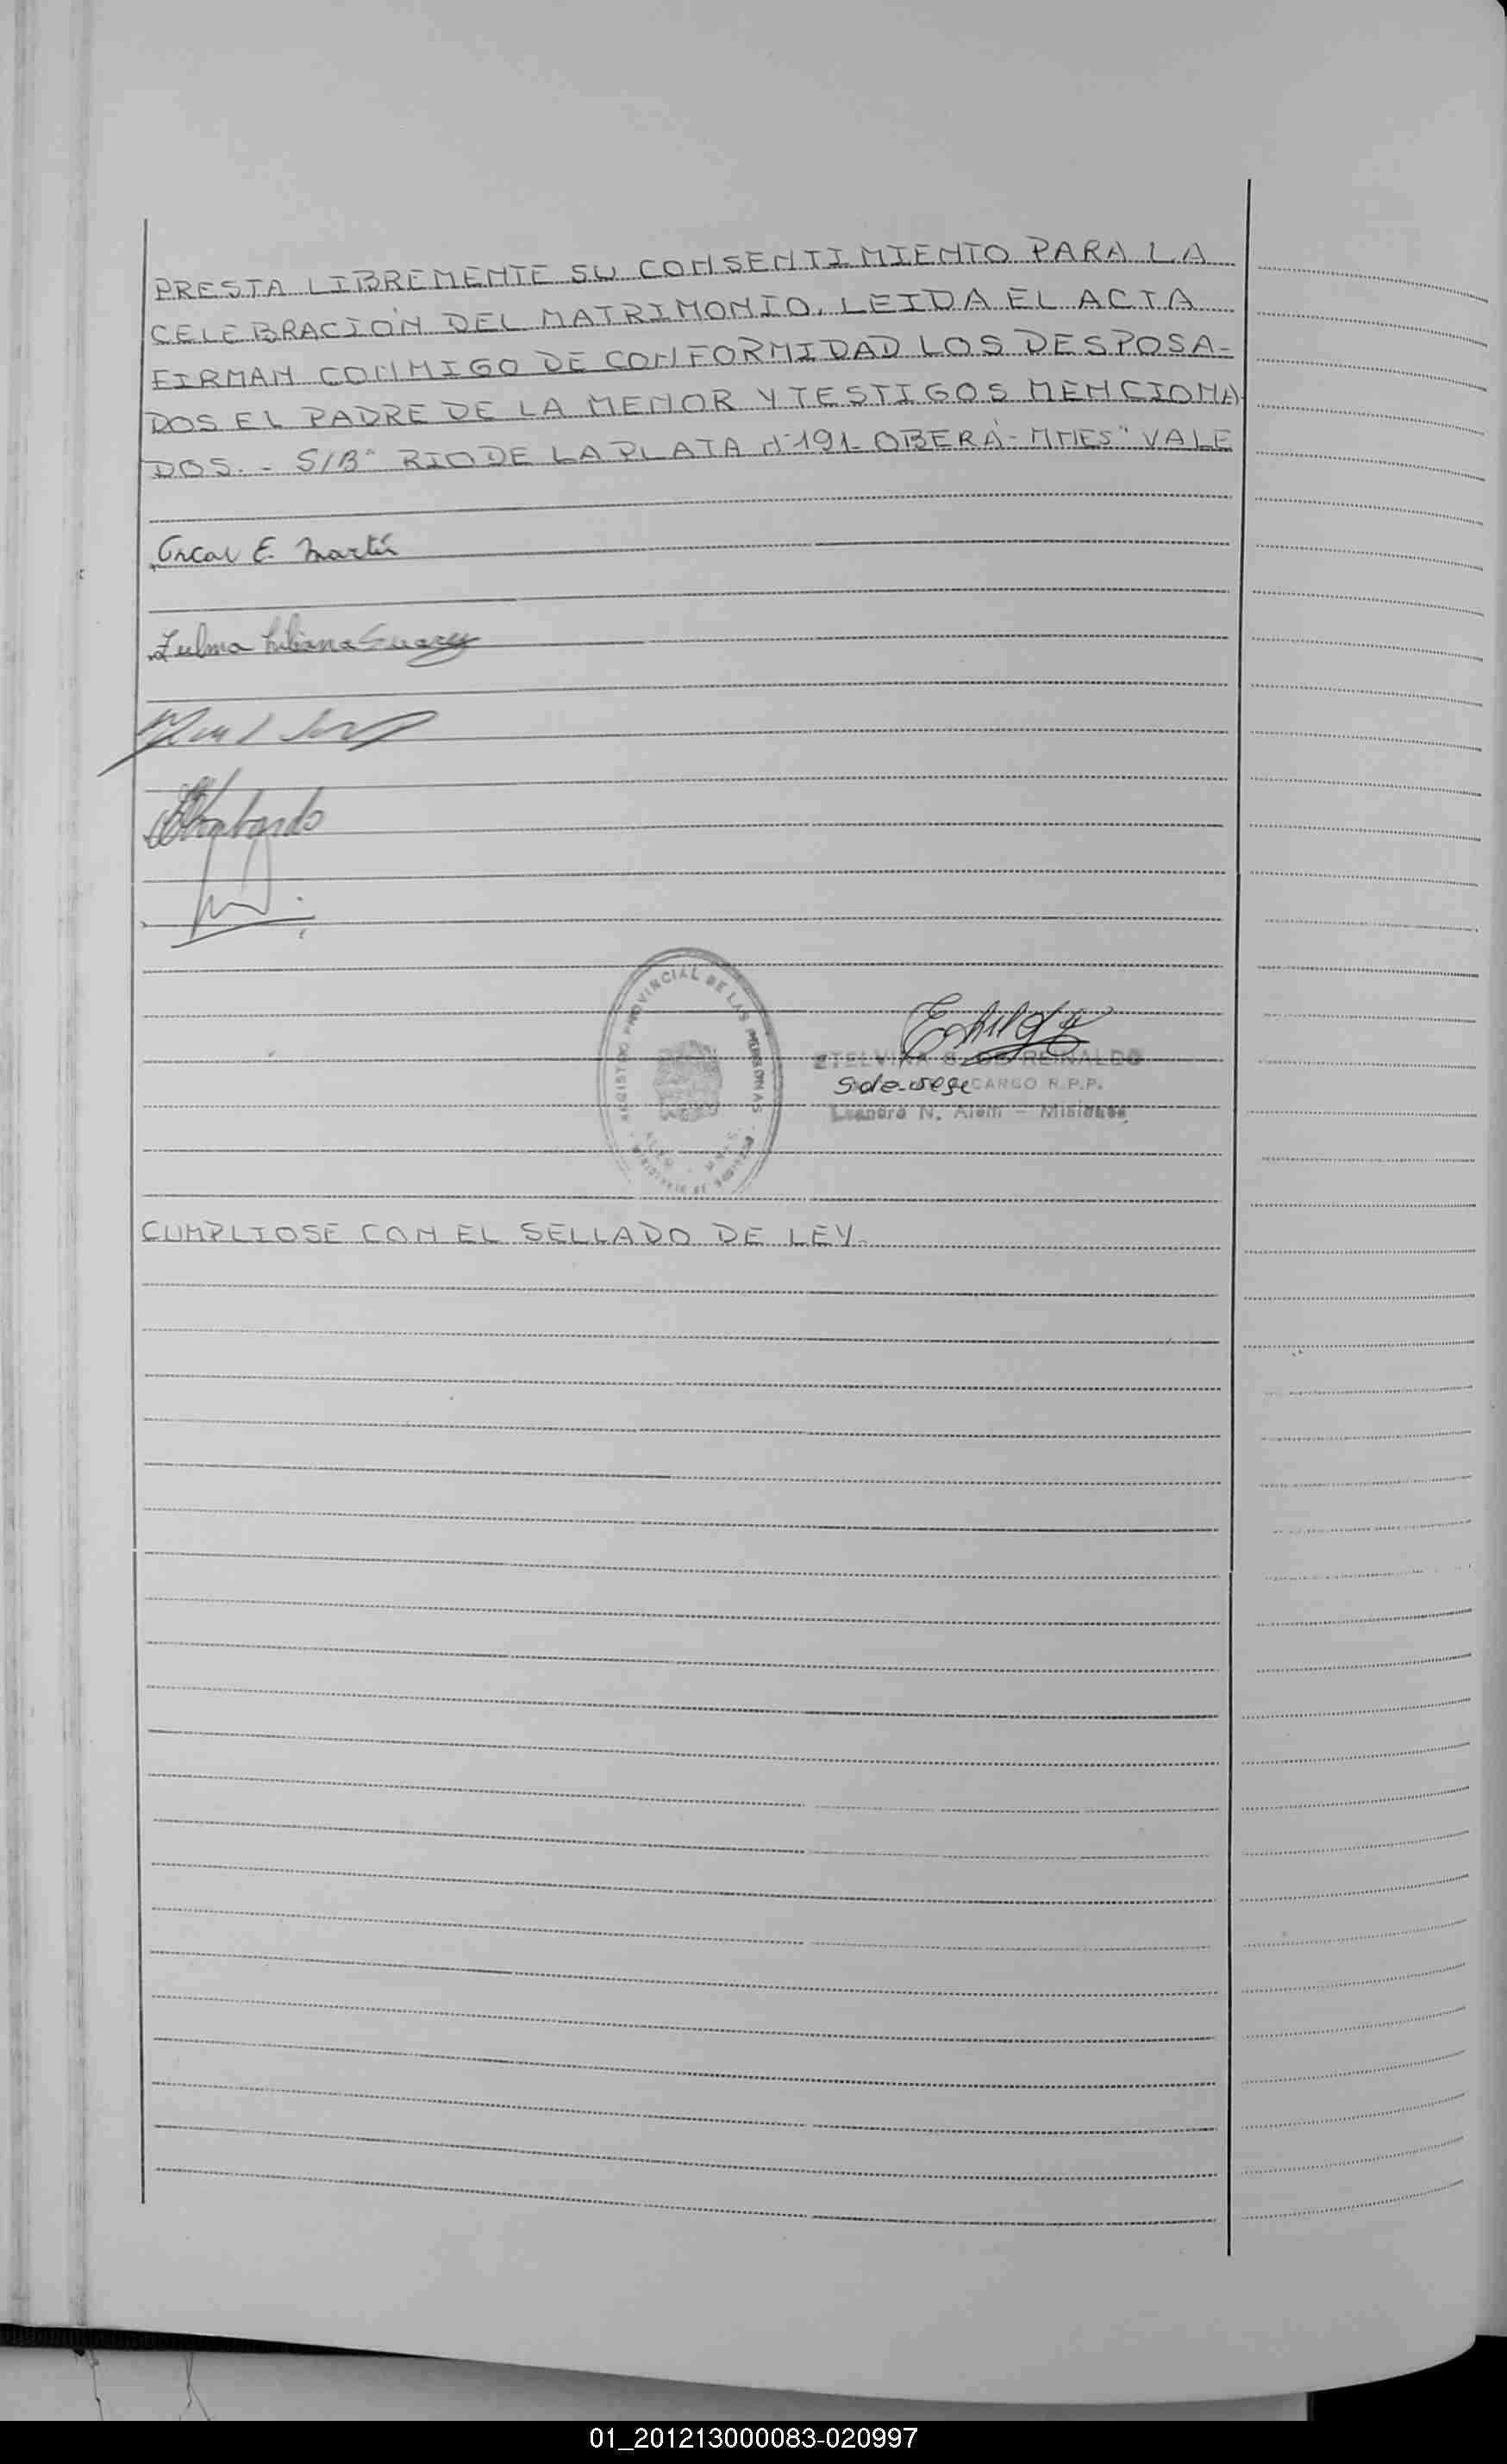 PRESTA LIBREMENTE SU CONSENTIMIENTO PARA LA
CELEBRACIÓN DEL MATRIMONIO. LEIDA EL ACTA
FIRMAN CONMIGO DE CONFORMIDAD LOS DESPOSA-
DOS EL PADRE DE LA MENOR Y TESTIGOS MENCIONA
DOS. - S/Bº RIO DE LA PLATA Nº 191- OBERÁ- MNES" VALE
Oscar E. Martín
Zulma Liliana Suarez
REGISTRO PROVINCIAL DE LAS PERSONAS
ETELVINA S. DE REINALDO
CARGO R.P.P.
Leandro N. Alem - Misiones
CUMPLIOSE CON EL SELLADO DE LEY.
01_201213000083-020997